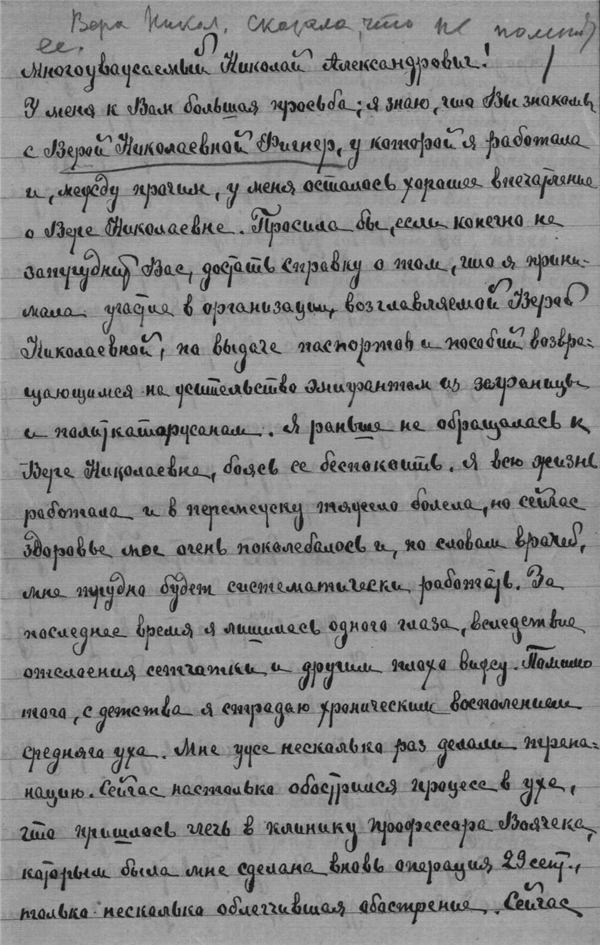 Вера Никол. сказала, что не помнит
ее.
Многоуважаемый Николай Александрович!
У меня к Вам большая просьба; я знаю, что Вы знакомы
с Верой Николаевной Фигнер, у которой я работала
и, между прочим, у меня осталось хорошее впечатление
о Вере Николаевне. Просила бы, если конечно не
затруднит Вас, достать справку о том, что я прини-
мала участие в организации, возглавляемой Верой
Николаевной, по выдаче паспортов и пособий возвра-
щающимся на жительство эмигрантам из заграницы
и политкаторжанам. Я раньше не обращалась к
Вере Николаевне, боясь ее беспокоить. Я всю жизнь
работала и в перемежку тяжело болела, но сейчас
здоровье мое очень поколебалось и, по словам врачей,
мне трудно будет систематически работать. За
последнее время я лишилась одного глаза, вследствие
отслоения сетчатки и другим плохо вижу. Помимо
того, с детства я страдаю хроническим восполением
среднего уха. Мне уже несколько раз делали трепа-
нацию. Сейчас настолько обострился процесс в ухе,
что пришлось лечь в клинику профессора Воячека,
которым была мне сделана вновь операция 29 сент.,
только несколько облегчившая обострение. Сейчас